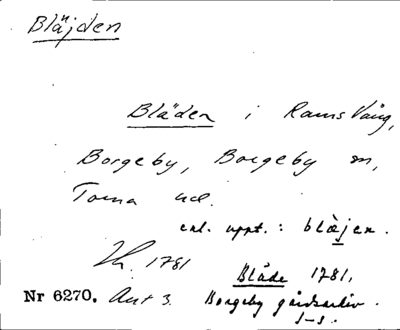 Bläjden
Bläden i Rams Vång,
Borgeby, Borgeby sn,
Torna hd.
enl. uppt. : blàjen.
1781
Blåde 1781,
Nr 6270. Ant 3. Borgeby gårdsarkiv.